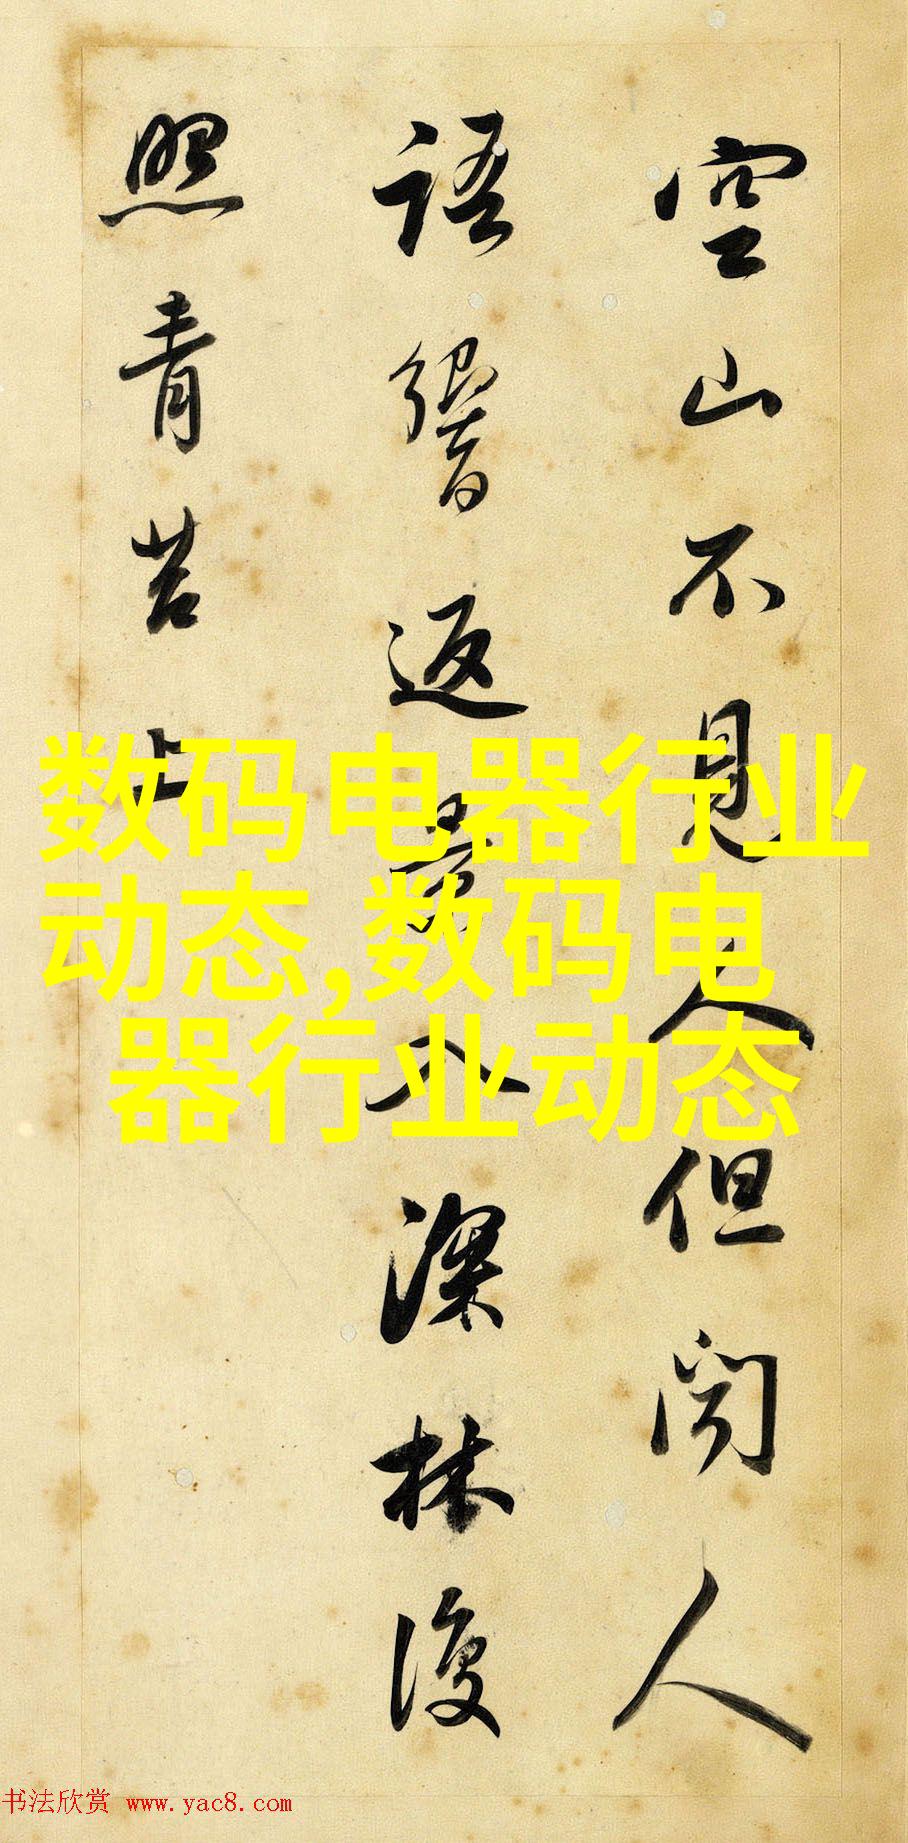 空山不見人但闻人
語響返景入深林復
照青苔上
数码电器行业
动态,数码电
器行业动态
书法欣赏 www.yac8.com